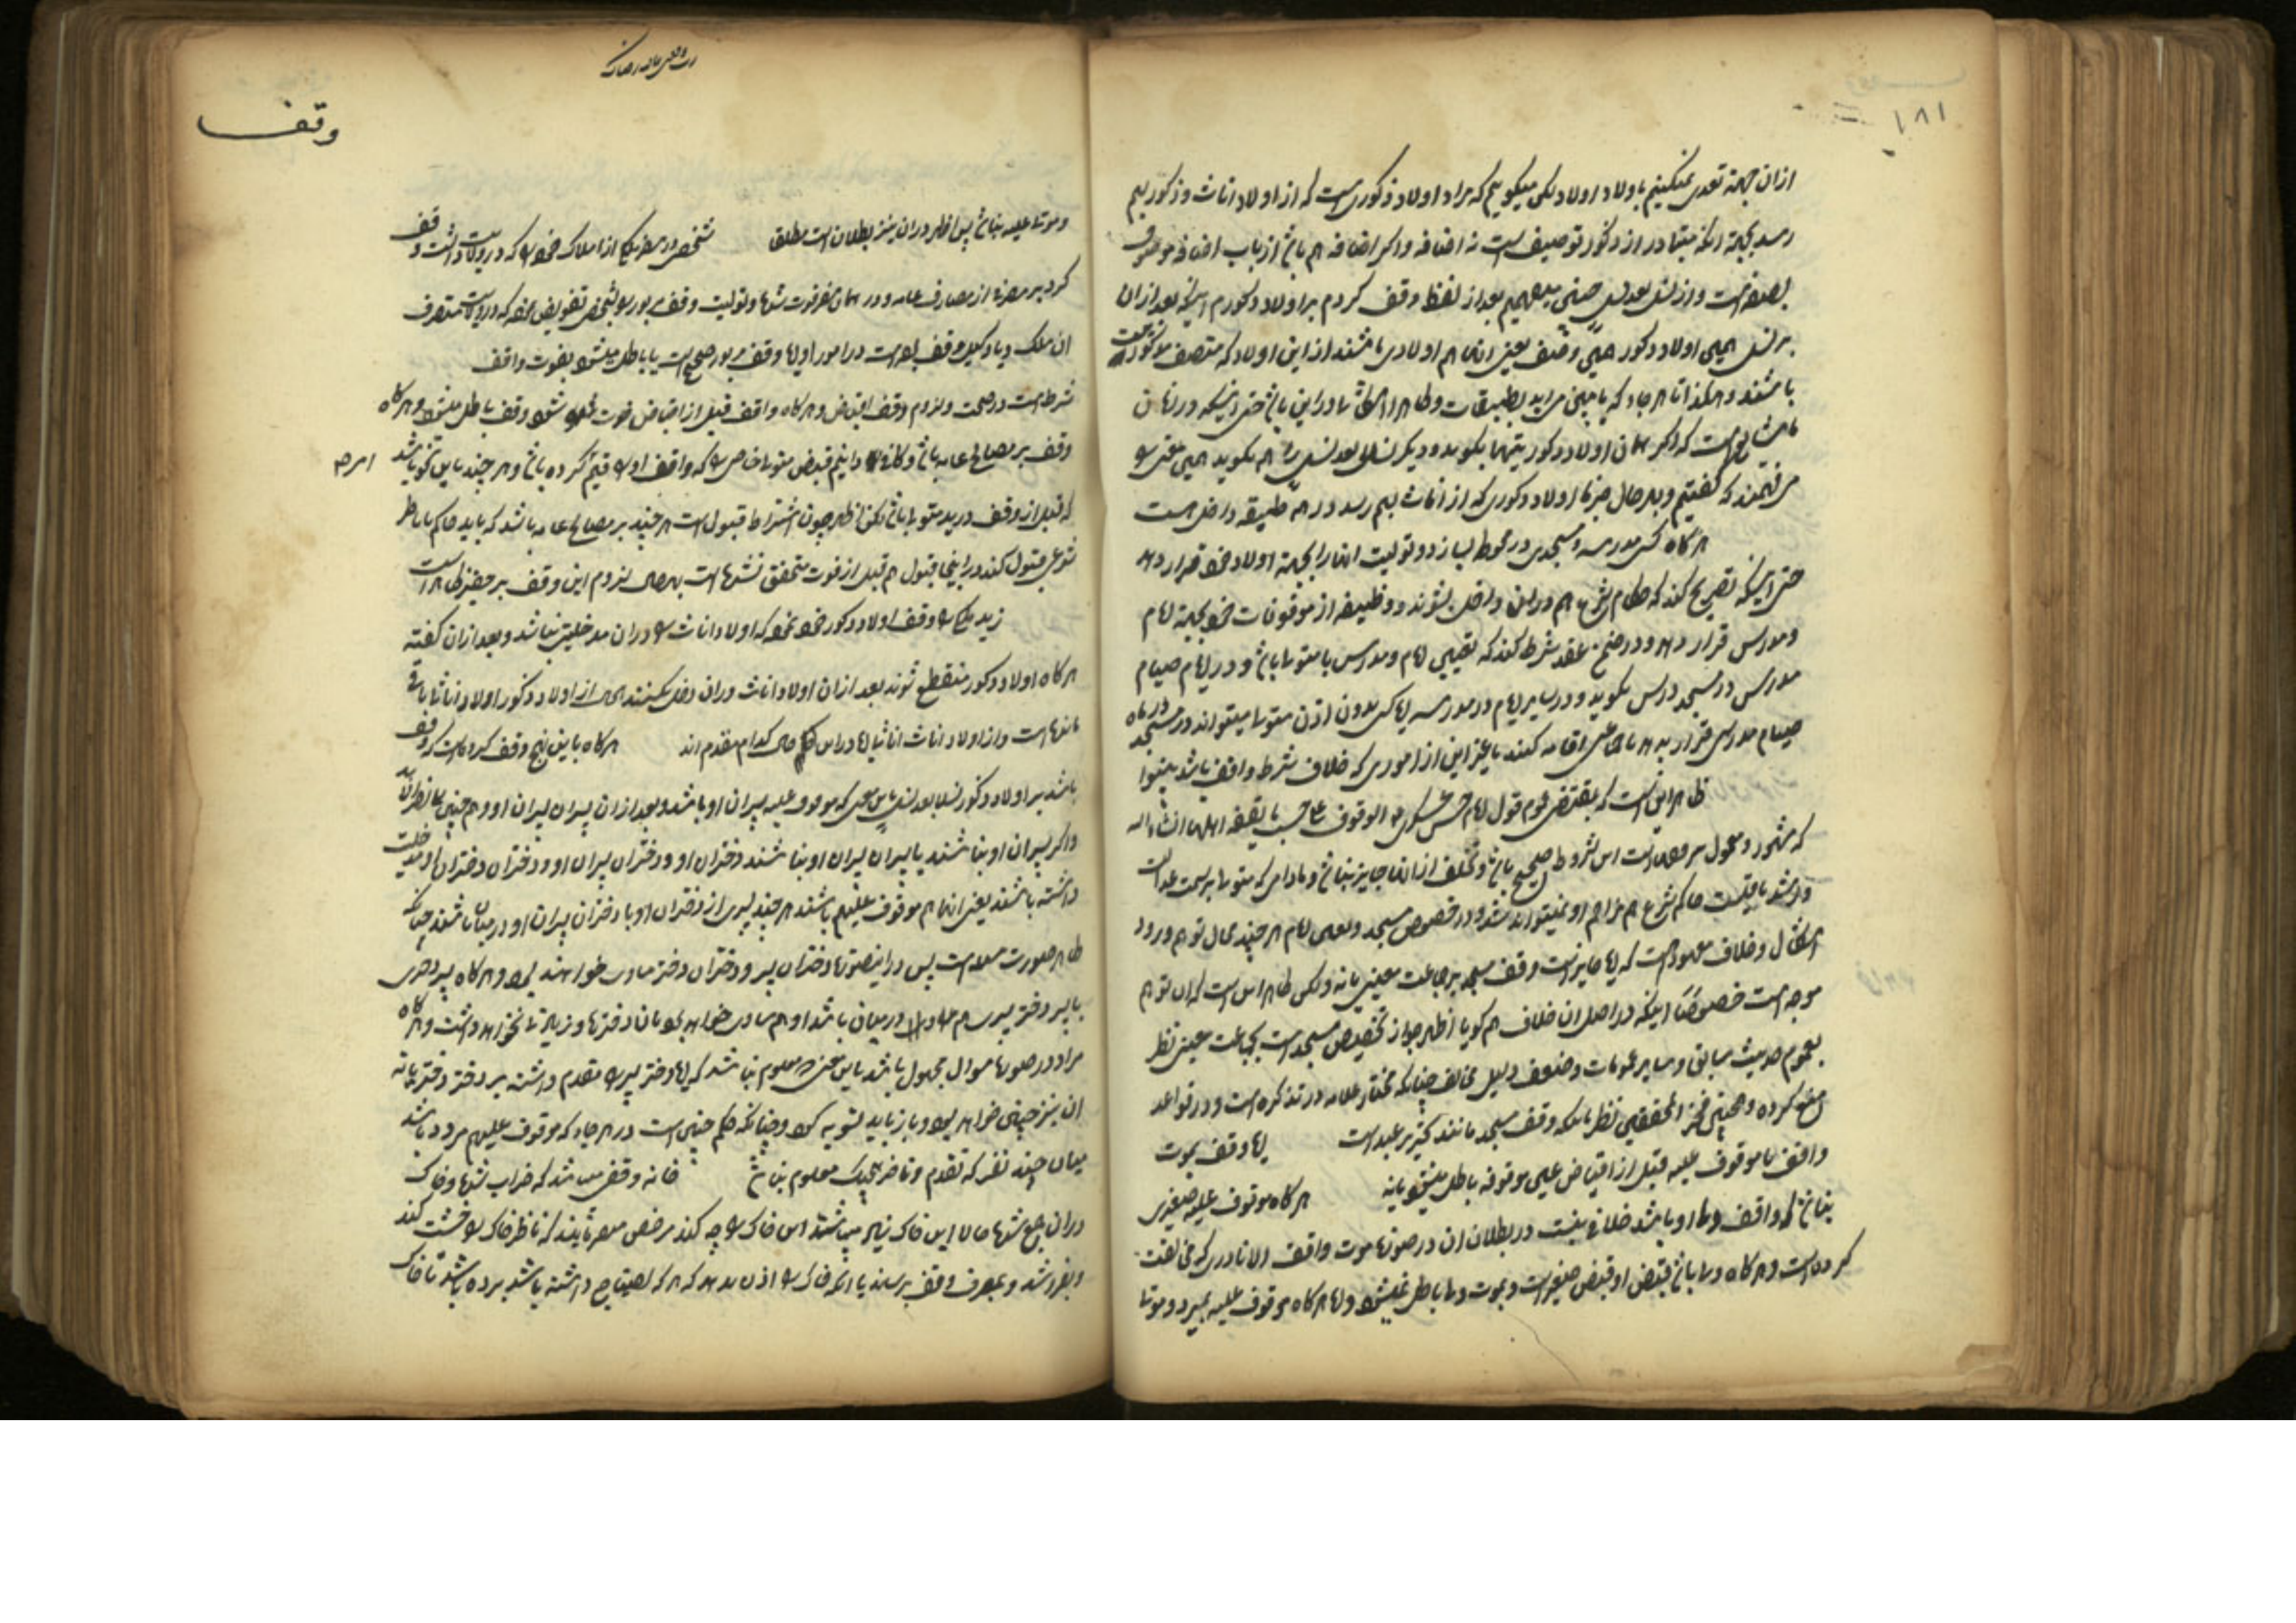 ۱۸۱
ازان جهة تعدی نمیکنیم باولاد اولاد لکن میکوییم که مراد اولاد ذکوری است که از اولاد اناث و ذکور بهم
رسد بجهة انکه متبادر از ذکور توصیف است نه اضافه و اکر اضافه هم باشد از باب اضافه موصوف
بصفه است و از نسلا بعد نسل چنین میفهمیم بعد از لفظ وقف کردم بر اولاد ذکورم اینکه بعد ازان
بر نسل همین اولاد ذکور همین وقف یعنی انها هم اولادی باشند از این اولاد که متصف
باشند و هکذا تا هر جا که پایین می اید بطبقات
است که اکر همان اولاد ذکور بتنهایی بکوید و دیکر نسلا بعد نسل را هم نکوید همین معنی را
می فهمند که کفتیم و بهر حال اولاد ذکوری که از اناث بهم رسد در طبقه داخل است
هر کاه کسی مدرسه و مسجدی در محوطه بسازد و تولیت انها را بجهة اولاد خود قرار دهد
حتی اینکه تصریح کند که حکام شرع هم در ان داخل نشوند و وظیفه از موقوفات خود بجهة امام
و مدرس قرار دهد و در ضمن عقد شرط کند که تعیین امام و مدرس با متولی باشد و در ایام صیام
مدرس در مسجد درس نکوید و در سایر ایام در مدرسه ایا کسی بدون اذن متولی میتواند در مسجد در ماه
صیام مدرسی قرار بدهد یا جماعتی اقامه کنند یا غیر این از اموری که خلاف شرط واقف باشد بینوا
ظاهر این است که بمقتضی عموم قول امام حسن عسکری ع الوقوف علی حسب ما یقفه اهلها انشاء الله
که مشهور و معمول به است این شروط صحیح باشد و تخلف از انها جایز نباشد و مادامی که متولی بر سمت عدالت
و رشد باقیست حاکم شرع هم مزاحم او نمیتواند شد و در خصوص مسجد و تعیین امام هر چند محال توهم ورود
اشکال و خلاف معهود است که ایا جایز است وقف مسجد بر جماعت معینی یا نه و لکن ظاهر این است که ان توهم
موجه است خصوصا اینکه در اصل ان خلاف هم کویا اظهر جواز تخصیص مسجد است بجماعت معینی نظر
بعموم حدیث سابق و سایر عمومات و ضعف دلیل مخالف چنانکه مختار علامه در تذکره است و در قواعد
منع کرده و همچنین فخر المحققین نظر بانکه وقف مسجد مانند تحریر عبد است ایا وقف بموت
واقف یا موقوف علیه قبل از اقباض عین موقوفه باطل میشود یا نه هر کاه موقوف علیه صغیری
نباشد که واقف ولی او باشد خلافی نیست در بطلان ان در صورة موت واقف الا نادری که مخالفت
کرده است و هر کاه ولی باشد قبض او قبض صغیر است و بموت ولی باطل نمیشود و اما هر کاه موقوف علیه بمیرد و موت
وقف
و موت علیه نباشد پس اظهر در ان نیز بطلان است مطلق شخصی در سفر یکی از املاک خود را که در ولایت داشت وقف
کرد بر مصرفی از مصارف عامه و در همان سفر فوت شد و تولیت وقف مزبور را بشخصی تفویض نمود که در ولایت متصرف
ان ملک و یا وکیل واقف بوده است در امور ایا وقف مزبور صحیح است یا باطل میشود بفوت واقف
شرط است در صحت و لزوم وقف اقباض و هر کاه واقف قبل از اقباض فوت شود وقف باطل میشود و هر کاه
وقف بر مصالح عامه باشد و کافی دانیم قبض متولی خاصی را که واقف او را قیم کرده باشد و هر چند باین نحو باشد
که قبل از وقف در ید متولی باشد لکن اظهر چون اشتراط قبول است هر چند بر مصالح عامه باشد که باید حاکم یا ناظر
شرعی قبول کند در اینجا قبول هم قبل از فوت متحقق نشده است لزوم این وقف بر حقیر ظاهر است
زید ملکی را وقف اولاد ذکور خود نمود که اولاد اناث را در ان مدخلیتی نباشد و بعد ازان کفته
هر کاه اولاد ذکور منقطع شوند بعد ازان اولاد اناث در ان دخل کنند از اولاد ذکور اولاد اناثا باقی
مانده است و از اولاد اناث اناثا ایا در این حکم کدام مقدم اند هر کاه باین نهج وقف کرده است که وقف
باشد بر اولاد ذکور نسلا بعد نسل باین معنی که موقوف علیه پسران او باشد و بعد ازان پسران پسران او و هم چنین
و اکر پسران او نباشند یا پسران پسران او نباشند دختران او و دختران پسران او و دختران دختران او مدخلیت
داشته باشند یعنی انها هم موقوف علیهم باشند هر چند پسری از دختران او یا دختران پسران او در میان باشند چنانکه
ظاهر صورت سوال است پس در اینصورة دختران پسر و دختران دختر مساوی خواهند بود و هر کاه پسر دختری
یا پسر دختر پسری هم در میان باشد او هم مساوی خواهد بود با ان دخترها و زیادتی نخواهد داشت و هر کاه
مراد در صورة سوال مجهول باشد باین معنی که معلوم نباشد که ایا دختر پسر را مقدم داشته بر دختر دختر یا نه
ان نیز چنین خواهد بود و باز باید تسویه کرد و چنانکه حکم چنین است در هر جا که موقوف علیهم مردد باشد
میان چند نفر که تقدم و تاخر هیچیک معلوم نباشد خانه وقفی میباشد که خراب شده و خاک
در ان جمع شده حالا این خاک زیاد میباشد این خاک را چه کند مرخص میفرمایند که ناظر خاک را خشت کند
و بفروشد و بمصرف وقف برساند یا انکه خاک را اذن بدهد که هر که احتیاج داشته باشد برده باشد تا خاک